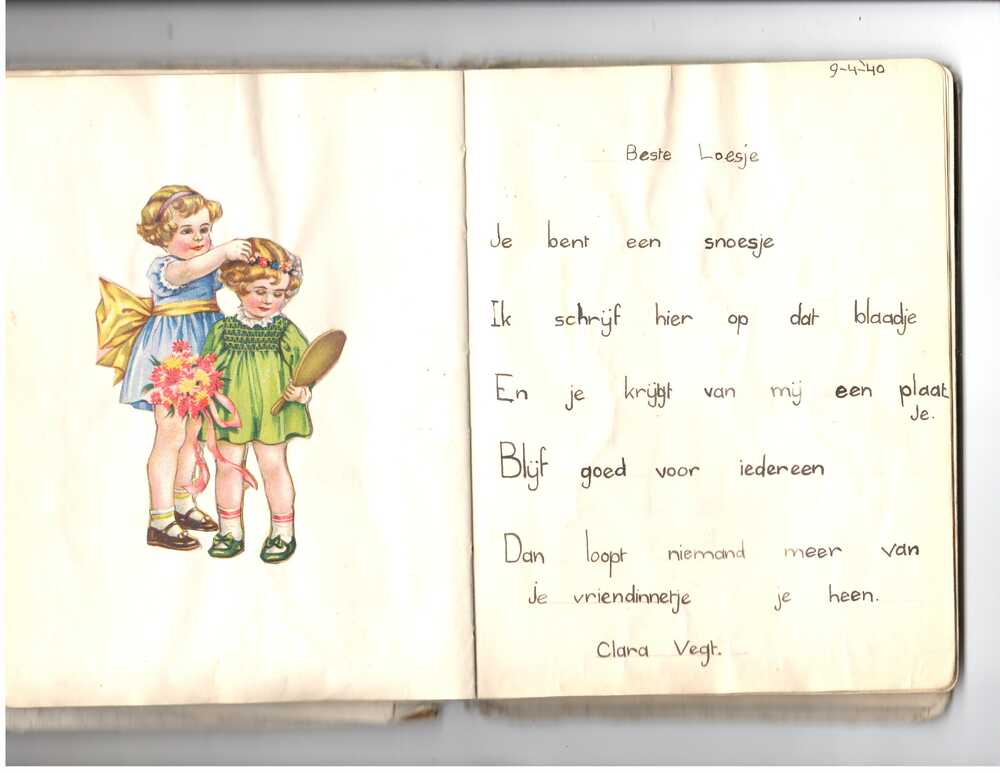 9-4-'40
Beste Loesje
Je bent een snoesje
Ik schrijf hier op dat blaadje
En je krijgt van mij een plaat
je.
Blijf goed voor iedereen
Dan loopt niemand meer van
je vriendinnetje je heen.
Clara Vegt.